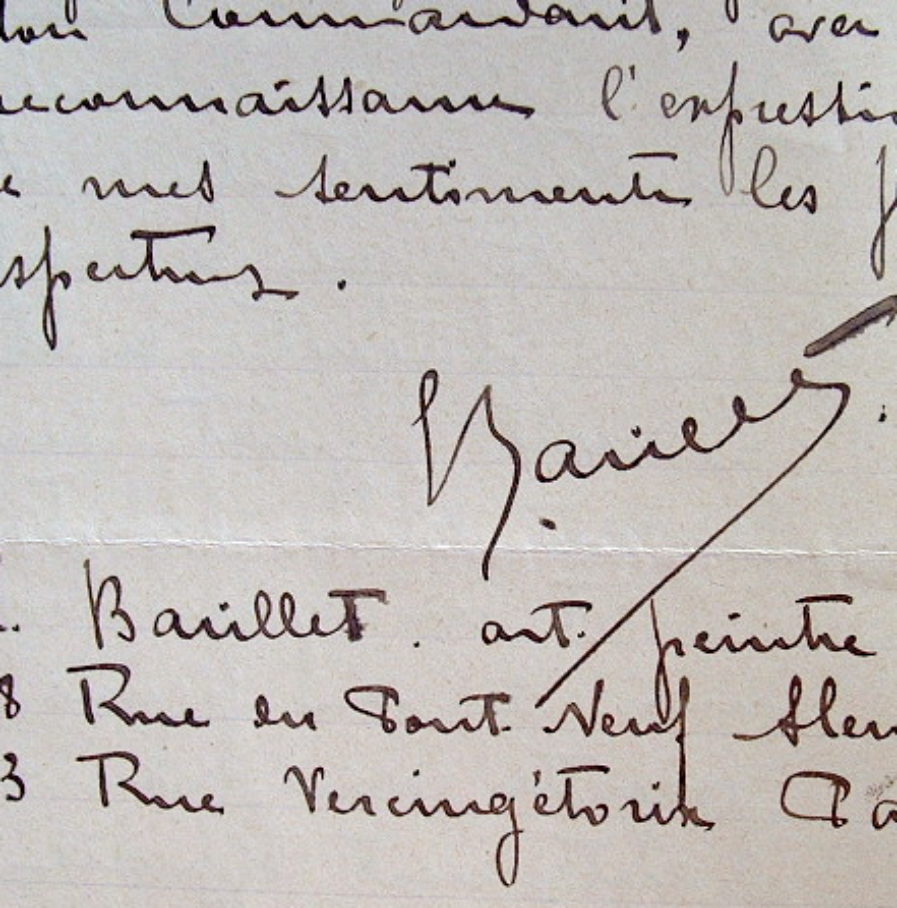 mon Commandant, avec
reconnaissance l'expressio
de mes sentiments les p
espectueux.
Barillet.
L. Barillet. art. peintre
8 Rue du Pont-Neuf Alen
3 Rue Vercingétorix Pa